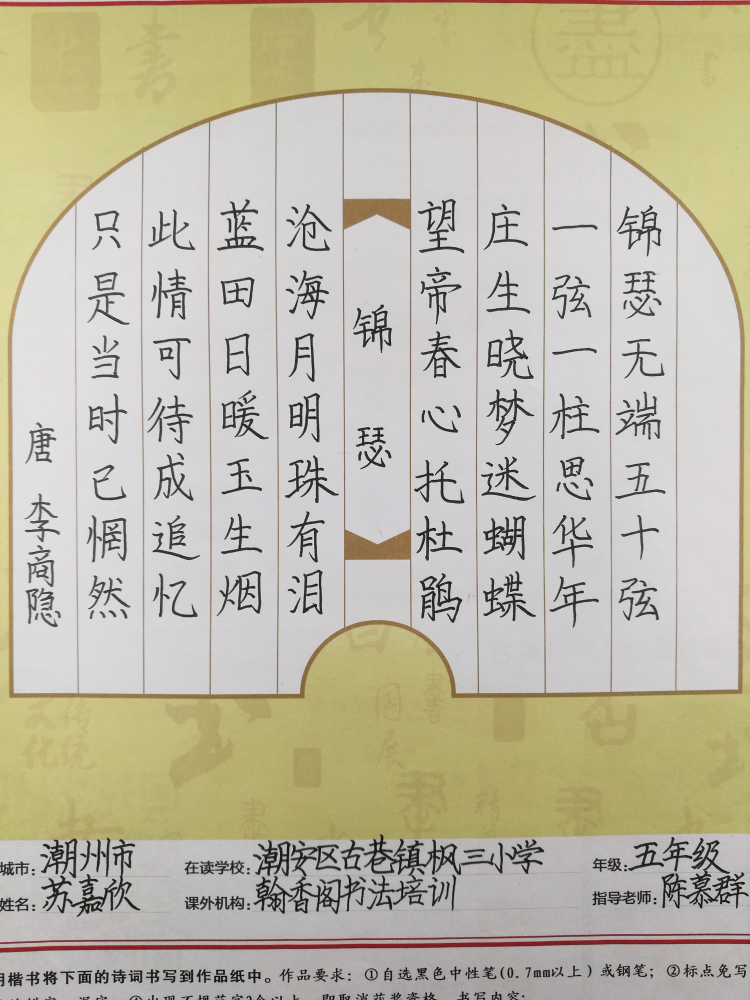 锦瑟无端五十弦
一弦一柱思华年
庄生晓梦迷蝴蝶
望帝春心托杜鹃
锦瑟
沧海月明珠有泪
蓝田日暖玉生烟
此情可待成追忆
只是当时已惘然
唐 李商隐
城市：潮州市 在读学校：潮安区古巷镇枫三小学 年级：五年级
姓名：苏嘉欣 课外机构：翰香阁书法培训 指导老师：陈慕群
用楷书将下面的诗词书写到作品纸中。作品要求：①自选黑色中性笔(0.7mm以上)或钢笔；②标点免写